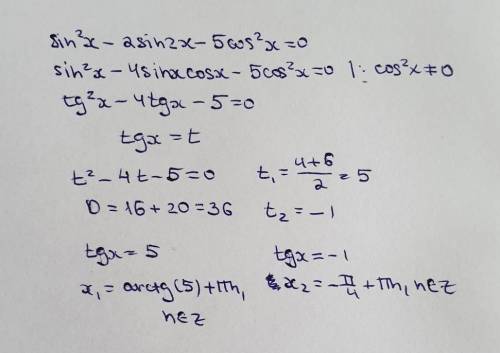 sin²x - 2sin2x - 5cos²x = 0
sin²x - 4sinxcosx - 5cos²x = 0 | : cos²x ≠ 0
tg²x - 4tgx - 5 = 0
tgx = t
t² - 4t - 5 = 0
D = 16 + 20 = 36
t₁ = (4+6)/2 = 5
t₂ = -1
tgx = 5
x₁ = arctg(5) + πn,
n∈z
tgx = -1
x₂ = -π/4 + πn, n∈z